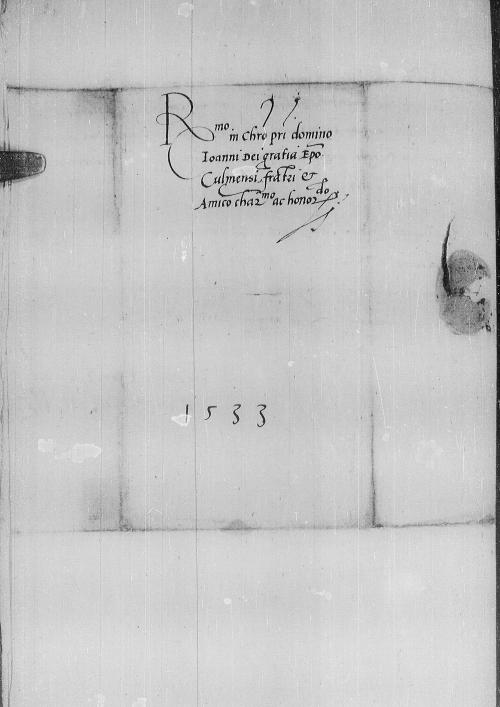 Rmo in Chro pri domino
Ioanni Dei gratia Epo
Culmensi fratri et
Amico charmo ac honordo
1533